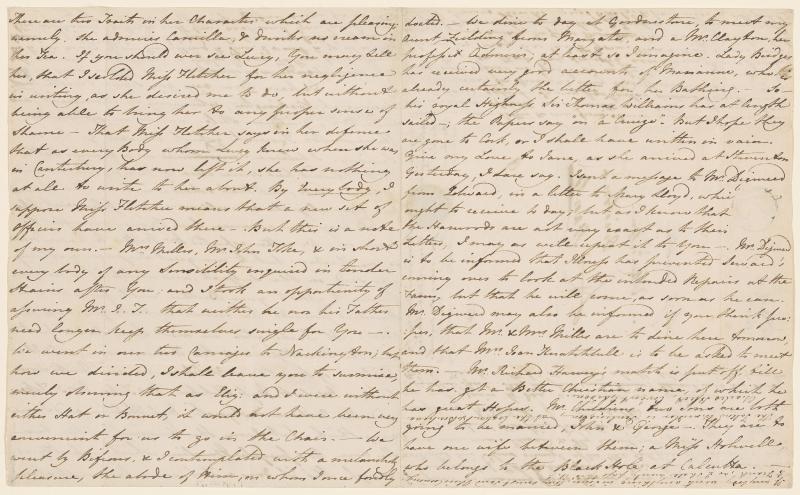 There are two Traits in her Character which are pleasing;
namely, she admires Camilla, & drinks no cream in
her Tea. If you should ever see Lucy, you may tell
her, that I scolded Miss Fletcher for her negligence
in writing, as she desired me to do, but without
being able to bring her to any proper sense of
Shame – That Miss Fletcher says in her defence
that as every Body whom Lucy knew when she was
in Canterbury, has now left it, she has nothing
at all to write to her about. By Everybody, I
suppose Miss Fletcher means that a new set of
Officers have arrived there –. But this is a note
of my own. – Mrs Milles, Mr John Toke, & in short
every body of any Sensibility enquired in tender
Strains after You; and I took an opportunity of
assuring Mr J. T. that neither he nor his Father
need longer keep themselves single for You –.
We went in our two Carriages to Nackington; but
how we divided, I shall leave you to surmise,
merely observing that as Eliz: and I were without
either Hat or Bonnet, it would not have been very
convenient for us to go in the Chair. – We
went by Bifrons, & I contemplated with a melancholy
pleasure, the abode of Him, on whom I once fondly
doated. – We dine to day at Godmersham, to meet my
Aunt Fielding from Margate, and a Mr Clayton, her
professed Admirer; at least, so I imagine. Lady Bridges
has received very good accounts of Marianne, who is
already certainly the better for her Bathing. – So –
his royal Highness Sir Thomas Williams has at length
sailed –; the Papers say "on a Cruize." But I hope they
are gone to Cork, or I shall have written in vain.
Give my Love to Jane, as she arrived at Steventon
Yesterday, I dare say. I sent a message to Mr Digweed
from Edward, in a letter to Mary Lloyd, which
ought to receive to day; but as I know that
the Harwoods are not very exact as to their
Letters, I may as well repeat it to You –. Mr Digweed
is to be informed that Illness has prevented Seward's
coming over to look at the intended Repairs at the
Farm, but that he will come, as soon as he can.
Mr Digweed may also be informed if you think pro:
:per, that Mr & Mrs Milles are to dine here tomorrow,
and that Mrs Joan Knatchbull is to be asked to meet
them. – Mr Richard Harvey's match is put off, till
he has got a Better Christian name, of which he
has great Hopes. Mr Children's two Sons are both
going to be married, John & George –. They are to
have one wife between them; a Miss Holwell
who belongs to the Black Hole at Calcutta. –